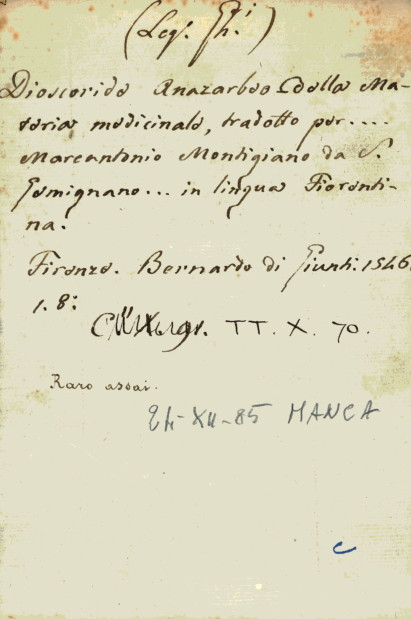 (Leg. Gh.i)
Dioscoride Anazarbeo Della Ma-
teria medicinale, tradotto per....
Marcantonio Montigiano da S.
Gemignano... in lingua Fiorenti-
na.
Firenze. Bernardo di Giunti. 1546.
1. 8:
TT. X. 70.
Raro assai.
24-XII-85 MANCA
c